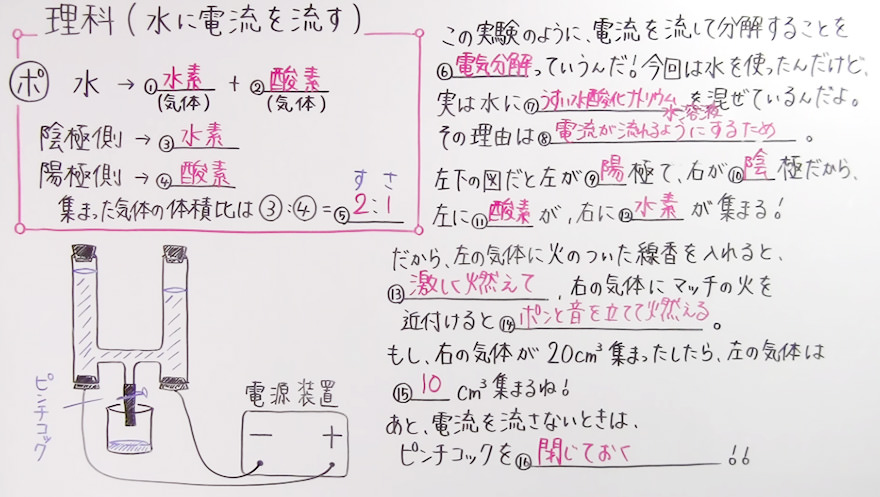 理科(水に電流を流す)
ポ 水 → ①水素 + ②酸素
(気体) (気体)
陰極側 → ③水素
陽極側 → ④酸素
す さ
集まった気体の体積比は③:④=⑤2:1
ピンチコック
電源装置
− +
この実験のように、電流を流して分解することを
⑥電気分解っていうんだ!今回は水を使ったんだけど、
実は水に⑦うすい水酸化ナトリウム水溶液を混ぜているんだよ。
その理由は⑧電流が流れるようにするため。
左下の図だと左が⑨陽極で、右が⑩陰極だから、
左に⑪酸素が、右に⑫水素が集まる!
だから、左の気体に火のついた線香を入れると、
⑬激しく燃えて、右の気体にマッチの火を
近付けると⑭ポンと音を立てて燃える。
もし、右の気体が20cm³集まったしたら、左の気体は
⑮10cm³集まるね!
あと、電流を流さないときは、
ピンチコックを⑯閉じておく!!